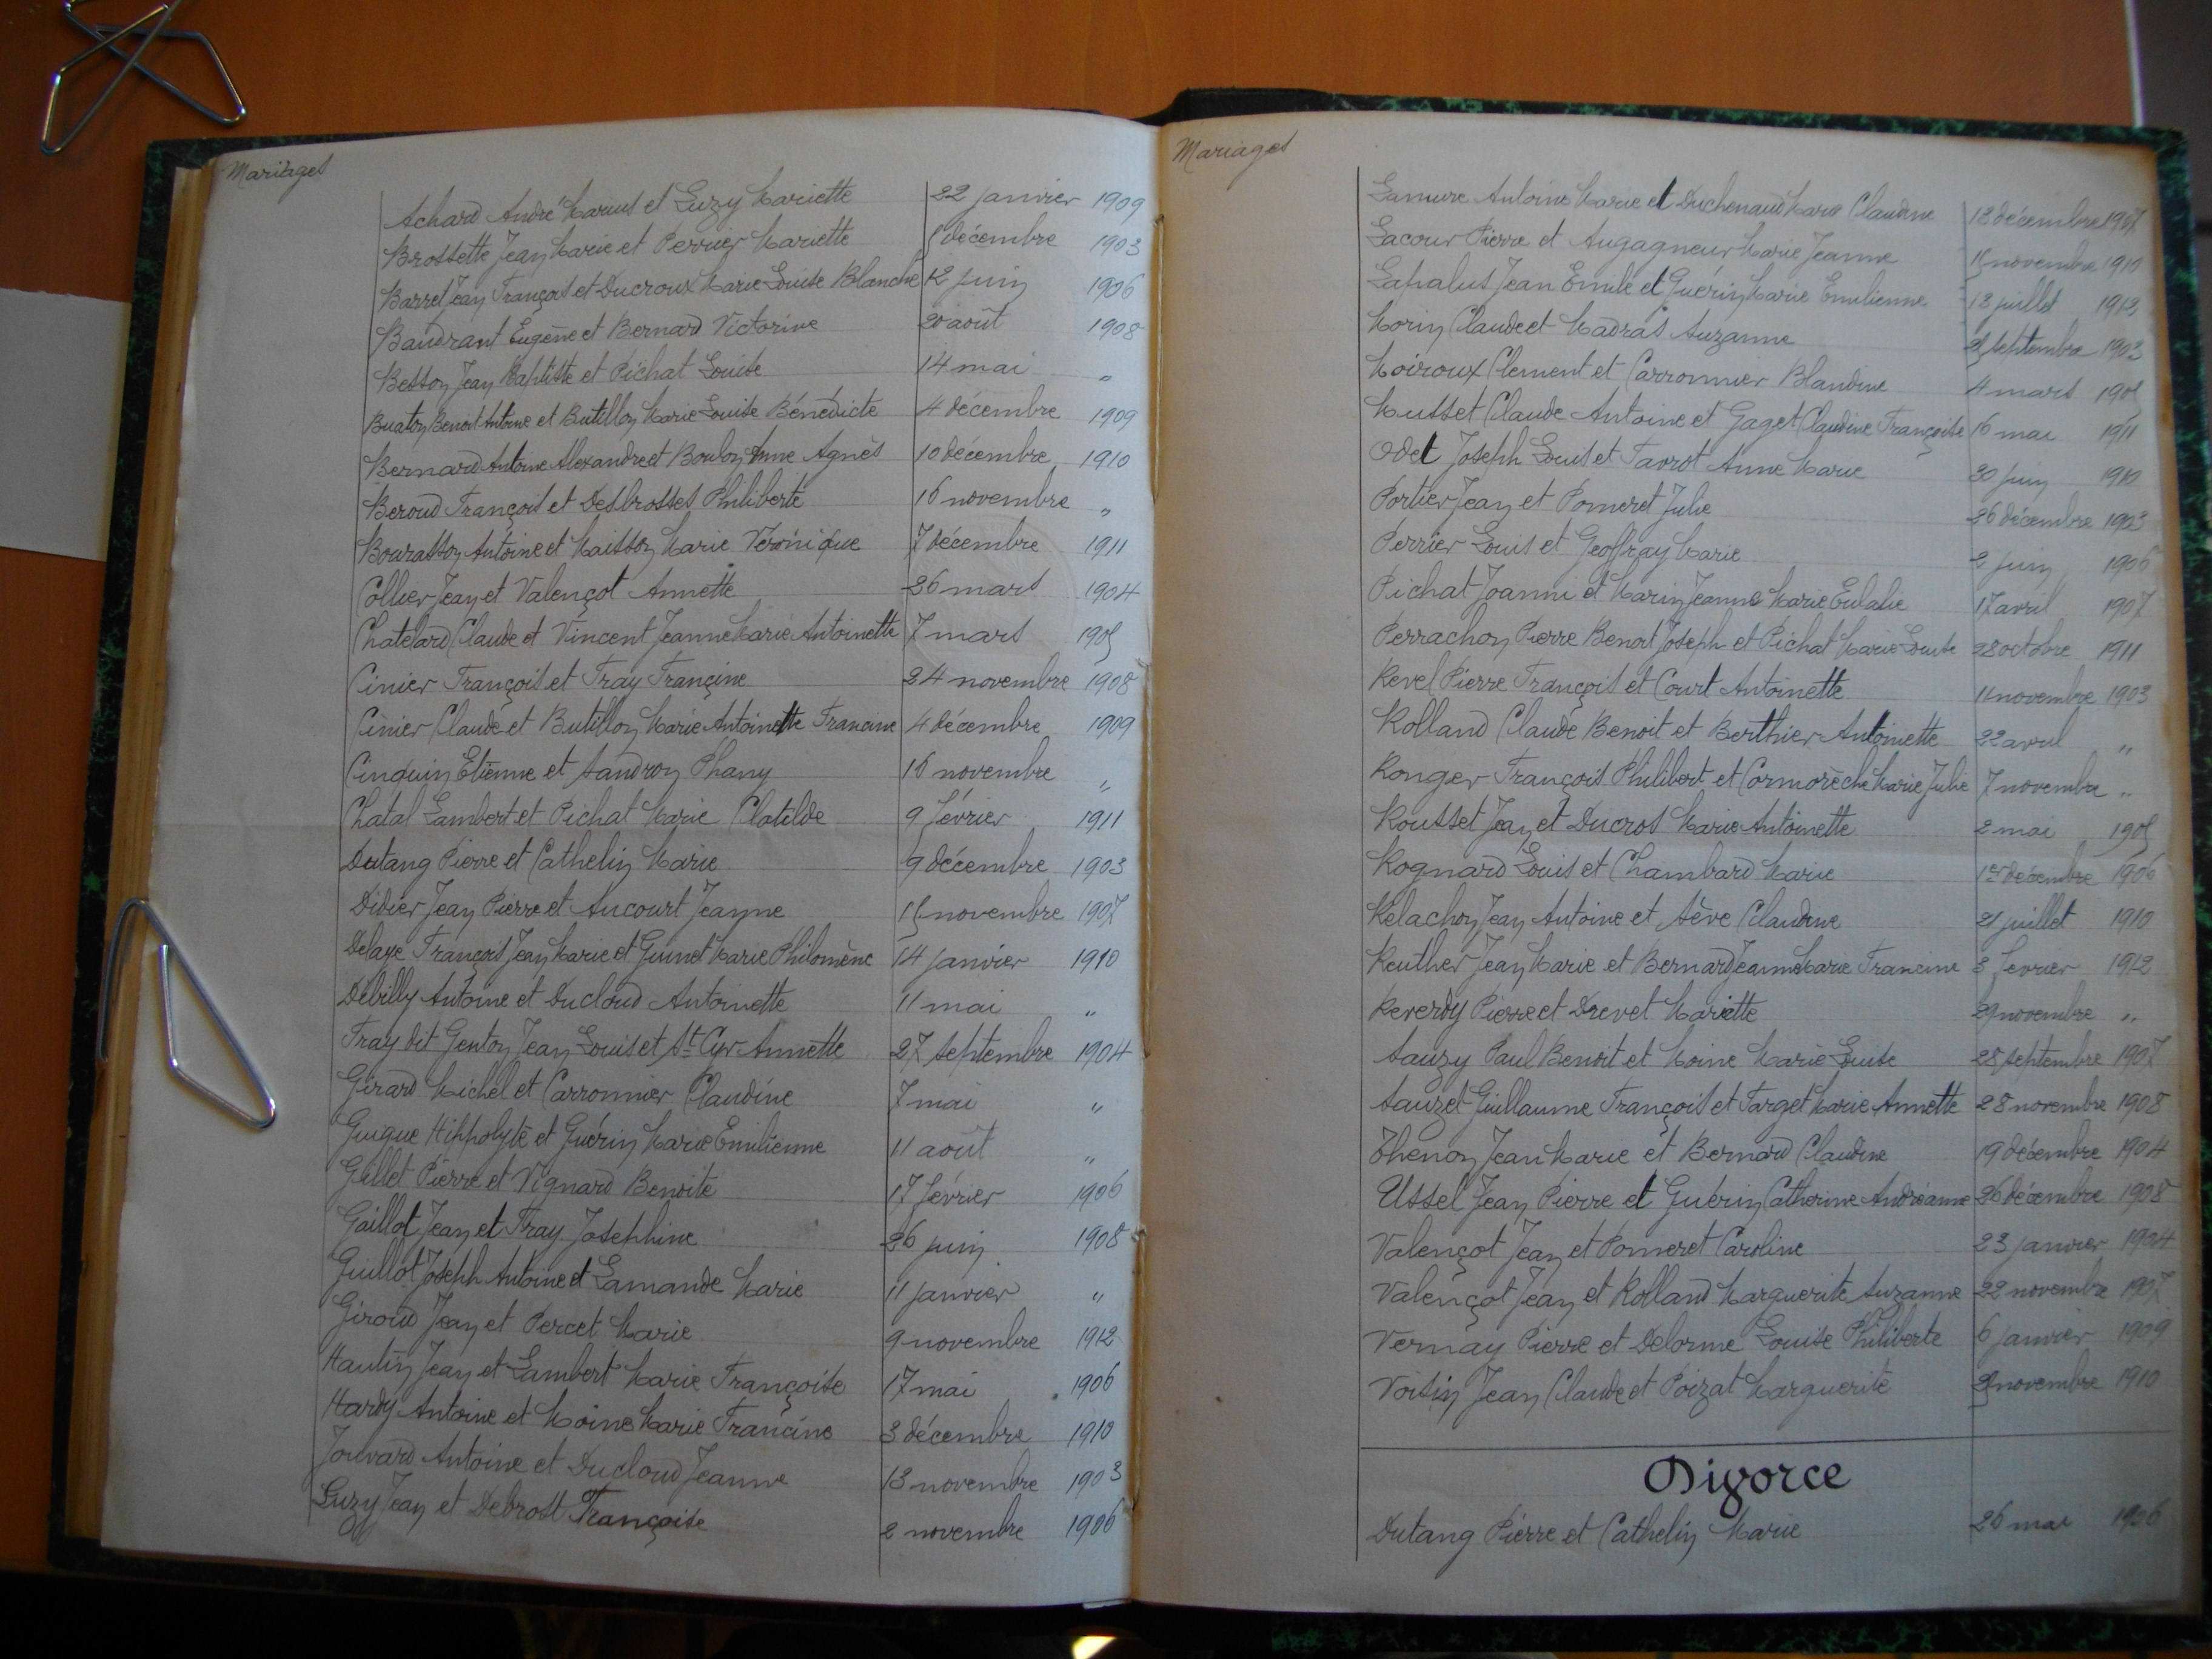 Mariages
Achard André Marius et Luzy Mariette 22 janvier 1909
Brossette Jean Marie et Perrier Mariette 5 décembre 1903
Barret Jean François et Ducroux Marie Louise Blanche 12 juin 1906
Baudrant Eugène et Bernard Victorine 20 août 1908
Besson Jean Baptiste et Pichat Louise 14 mai "
Buaton Benoit Antoine et Butillon Marie Louise Bénédicte 4 décembre 1909
Bernard Antoine Alexandre et Boulon Anne Agnès 10 décembre 1910
Beroud François et Desbrosses Philiberte 16 novembre "
Bourasson Antoine et Maisson Marie Véronique 7 décembre 1911
Collier Jean et Valençot Annette 26 mars 1904
Chatelard Claude et Vincent Jeanne Marie Antoinette 7 mars 1905
Cinier François et Fray Françine 24 novembre 1908
Cinier Claude et Butillon Marie Antoinette Francine 4 décembre 1909
Cinquin Etienne et Sandron Phany 16 novembre "
Chatal Lambert et Pichat Marie Clotilde 9 février 1911
Dutang Pierre et Cathelin Marie 9 décembre 1903
Didier Jean Pierre et Aucourt Jeanne 15 novembre 1907
Delaye François Jean Marie et Guinet Marie Philomène 14 janvier 1910
Débilly Antoine et Ducloud Antoinette 11 mai "
Fray dit Genton Jean Louis et St Cyr Annette 27 septembre 1904
Girard Michel et Carronnier Claudine 7 mai "
Guigue Hippolyte et Guérin Marie Emilienne 11 août "
Gillet Pierre et Vignard Benoite 17 février 1906
Gaillot Jean et Fray Josephine 26 juin 1908
Guillot Joseph Antoine et Lamande Marie 11 janvier "
Giroud Jean et Percet Marie 9 novembre 1912
Hautin Jean et Lambert Marie Françoise 17 mai 1906
Hardy Antoine et Moine Marie Francine 3 décembre 1910
Jouvard Antoine et Ducloud Jeanne 13 novembre 1903
Luzy Jean et Debrost Françoise 2 novembre 1906
Mariages
Lamure Antoine Marie et Duchenaud Marie Claudine 18 décembre 1907
Lacour Pierre et Augagneur Marie Jeanne 15 novembre 1910
Lapalus Jean Emile et Guérin Marie Emilienne 12 juillet 1912
Morin Claude et Madras Suzanne septembre 1903
Moiroux Clement et Carronnier Blandine 4 mars 1905
Musset Claude Antoine et Gaget Claudine Françoise 16 mai 1911
Odet Joseph Louis et Favrot Anne Marie 30 juin 1910
Portier Jean et Pomeret Julie 26 décembre 1903
Perrier Louis et Geoffray Marie 2 juin 1906
Pichat Joanni et Marin Jeanne Marie Eulalie 17 avril 1907
Perrachon Pierre Benoit Joseph et Pichat Marie Louise 28 octobre 1911
Revel Pierre François et Court Antoinette 11 novembre 1903
Rolland Claude Benoit et Berthier Antoinette 22 avril "
Ronger François Philibert et Cormorèche Marie Julie 7 novembre "
Rousset Jean et Ducros Marie Antoinette 2 mai 1905
Rognard Louis et Chambard Marie 1er décembre 1906
Rélachon Jean Antoine et Sève Claudine 21 juillet 1910
Reuther Jean Marie et Bernard Jeanne Marie Francine 3 fevrier 1912
Reverdy Pierre et Drevet Mariette 29 novembre "
Sauzy Paul Benoit et Moine Marie Louise 28 septembre 1907
Sauzet Guillaume François et Farget Marie Annette 28 novembre 1908
Thenon Jean Marie et Bernard Claudine 19 décembre 1904
Ussel Jean Pierre et Guérin Catherine Andréanne 26 décembre 1908
Valençot Jean et Pomeret Caroline 23 janvier 1904
Valençot Jean et Rolland Marguerite Suzanne 22 novembre 1907
Vernay Pierre et Delorme Louise Philiberte 6 janvier 1909
Voisin Jean Claude et Poizat Marguerite novembre 1910
Divorce
Dutang Pierre et Cathelin Marie 26 mai 1906